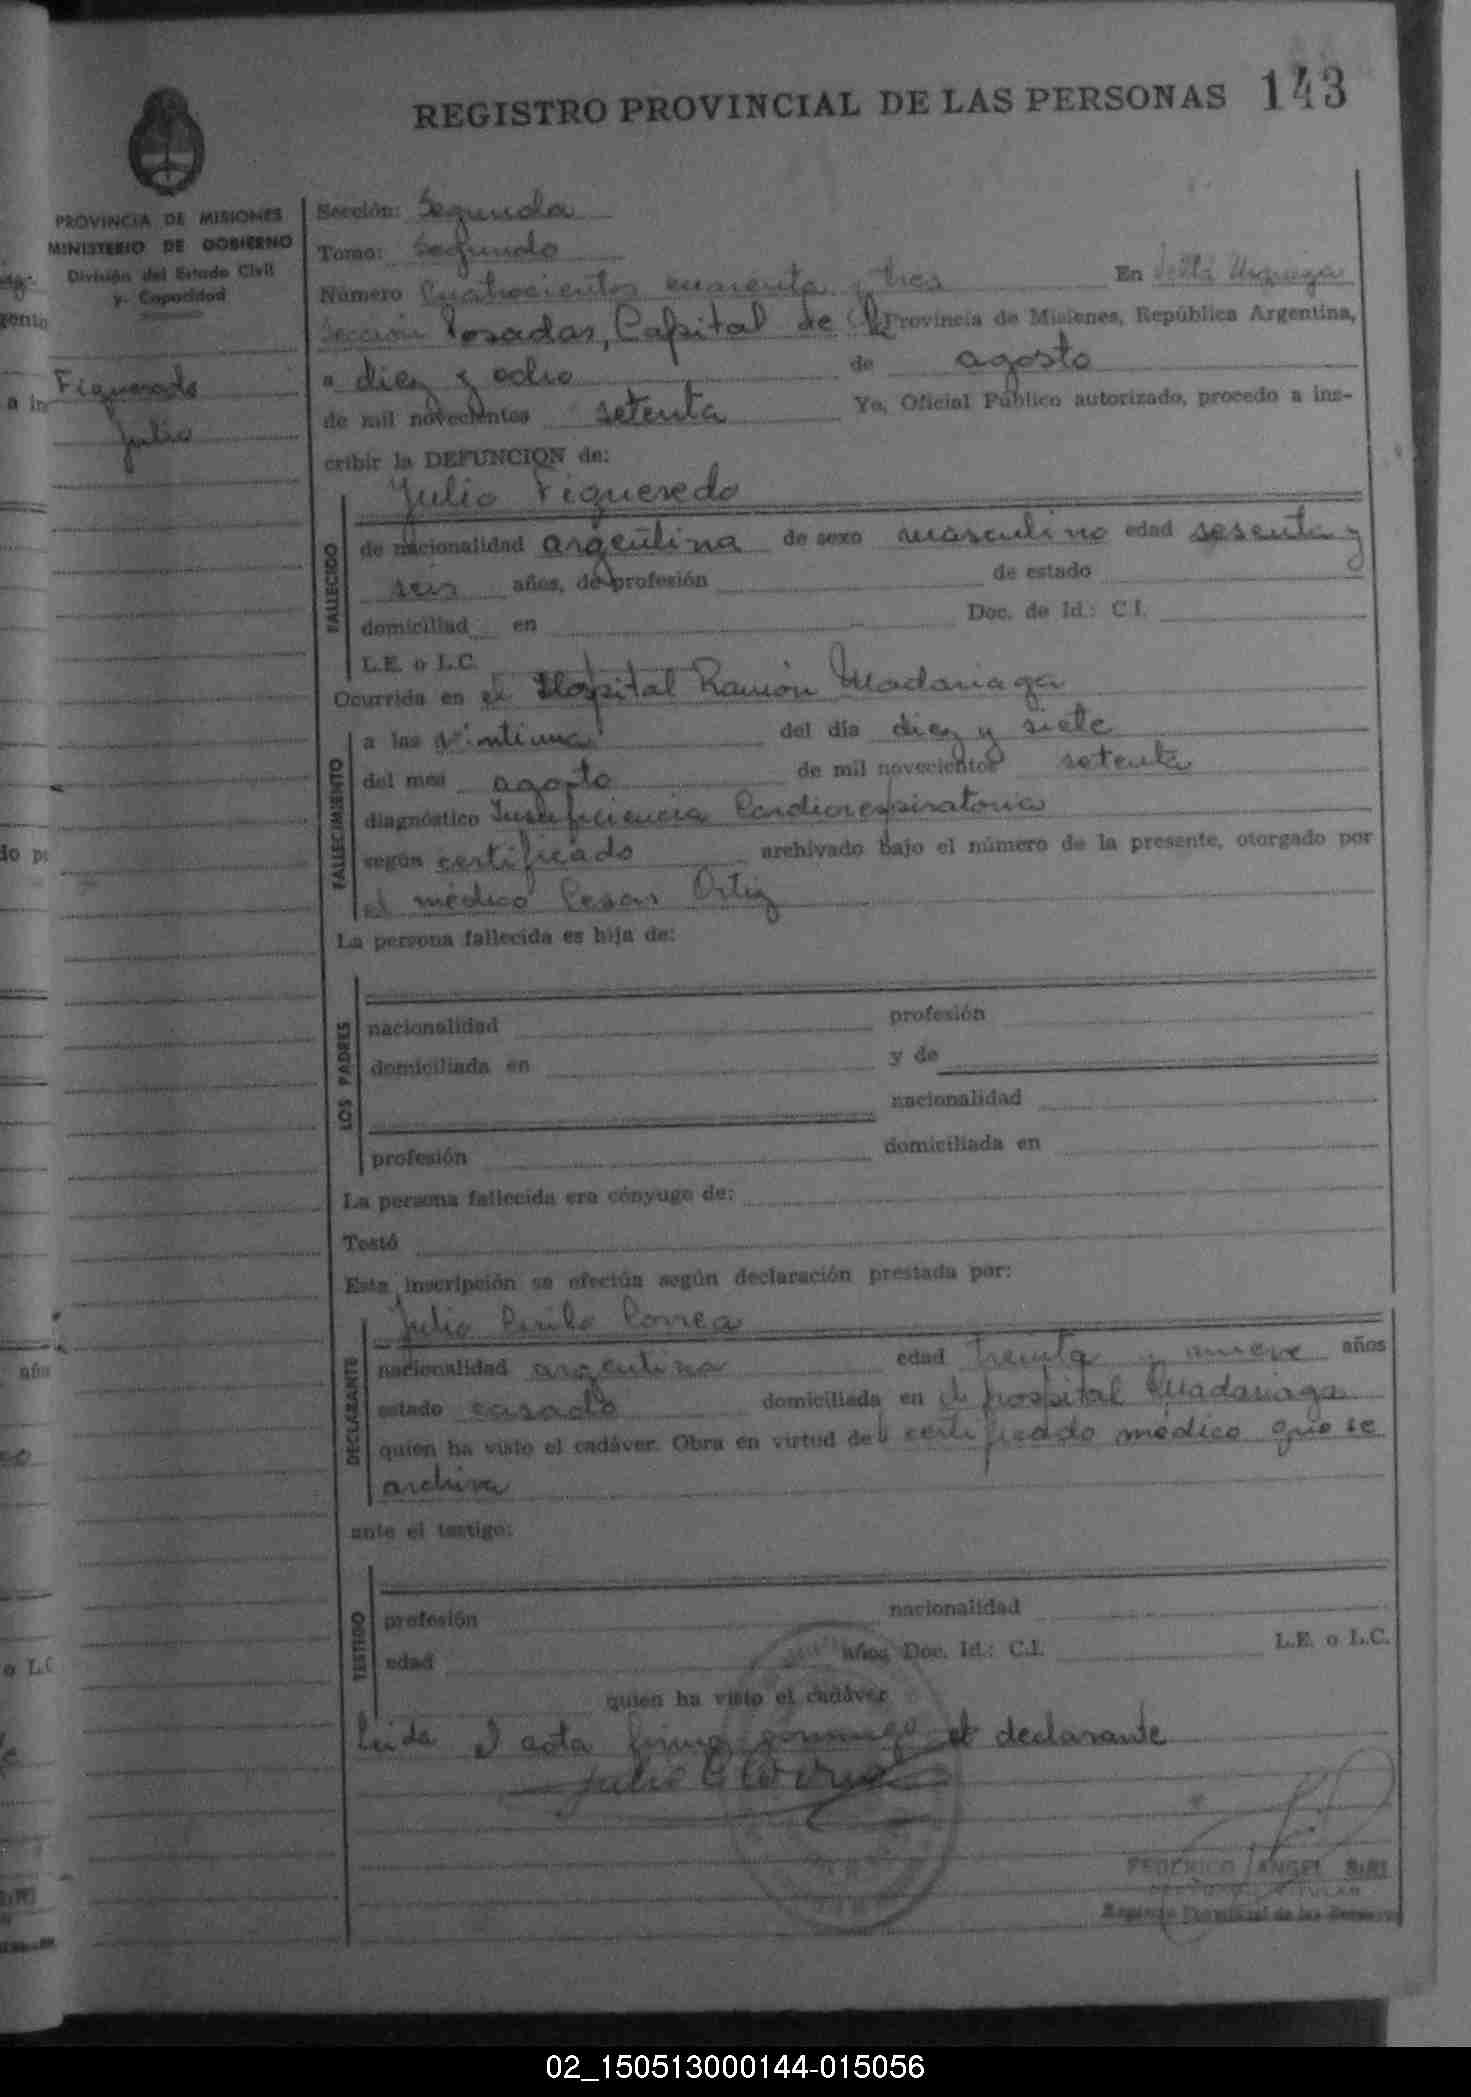 REGISTRO PROVINCIAL DE LAS PERSONAS 143
PROVINCIA DE MISIONES
MINISTERIO DE GOBIERNO
División del Estado Civil
y Capacidad
Figueredo
Julio
Sección: Segunda
Tomo: Segundo
Número Cuatrocientos cuarenta y tres En Villa Urquiza
Sección Posadas, Capital de la Provincia de Misiones, República Argentina,
a diez y ocho de agosto
de mil novecientos setenta Yo, Oficial Público autorizado, procedo a ins-
cribir la DEFUNCION de:
Julio Figueredo
FALLECIDO
de nacionalidad argentina de sexo masculino edad sesenta y
seis años, de profesión de estado
domiciliad en Doc. de Id.: C.I.
L.E. o L.C.
Ocurrida en el Hospital Ramón Madariaga
FALLECIMIENTO
a las vintiuna del día diez y siete
del mes agosto de mil novecientos setenta
diagnóstico Insuficiencia Cardiorespiratoria
según certificado archivado bajo el número de la presente, otorgado por
el médico Cesar Ortiz
La persona fallecida es hija de:
LOS PADRES
nacionalidad profesión
domiciliada en y de
nacionalidad
profesión domiciliada en
La persona fallecida era cónyuge de:
Testó
Esta inscripción se efectúa según declaración prestada por:
Julio Cirilo Correa
DECLARANTE
nacionalidad argentina edad treinta y nueve años
estado casado domiciliada en el hospital Madariaga
quien ha visto el cadáver. Obra en virtud del certificado médico que se
archiva
ante el testigo:
TESTIGO
profesión nacionalidad
edad años Doc. Id.: C.I. L.E. o L.C.
quien ha visto el cadáver
Leida el acta firma conmigo el declarante
FEDERICO ANGEL
Registro Provincial de las Personas
02_150513000144-015056